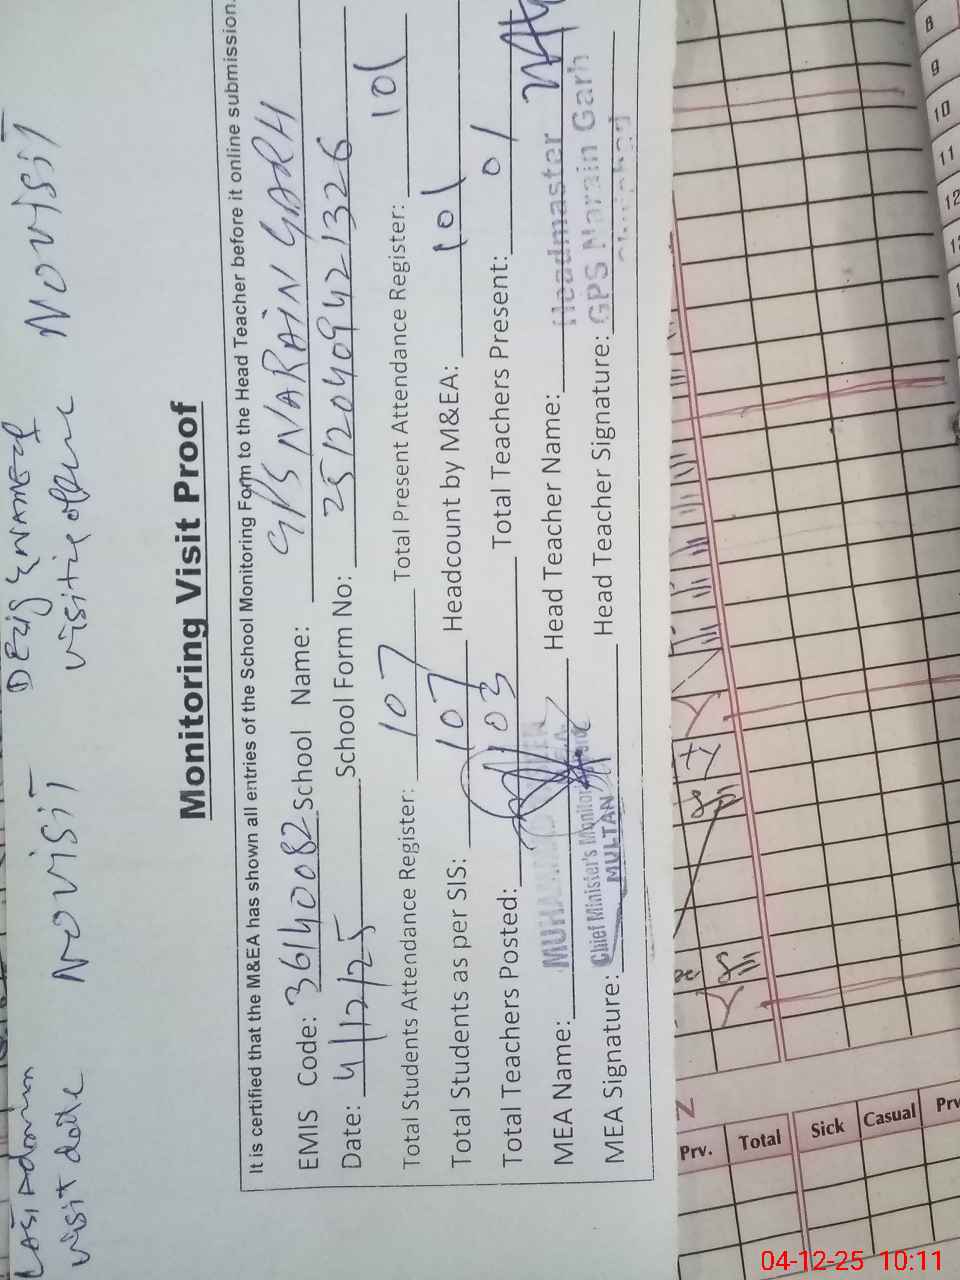 Last Admn visit date No visit
Desig & name of visiting officer No visit
Monitoring Visit Proof
It is certified that the M&EA has shown all entries of the School Monitoring Form to the Head Teacher before it online submission.
EMIS Code: 36140082 School Name: GPS NARAIN GARH
Date: 4/12/25 School Form No: 2512040942 1326
Total Students Attendance Register: 107 Total Present Attendance Register: 101
Total Students as per SIS: 107 Headcount by M&EA: 101
Total Teachers Posted: 03 Total Teachers Present: 01
MEA Name: MUHAMMAD Head Teacher Name: Headmaster
MEA Signature: Chief Minister's Monitoring Head Teacher Signature: GPS Narain Garh
MULTAN
8
9
10
11
12
Prv. Total Sick Casual Prv
04-12-25 10:11